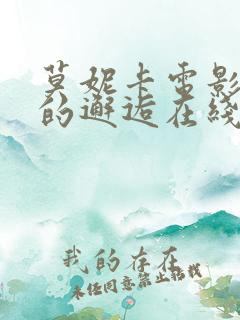 莫妮卡電影
的邂逅在綫
我的存在
未经同意禁止招我